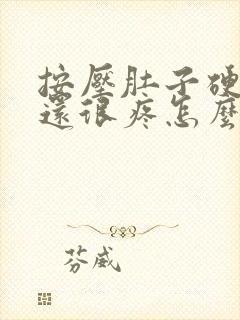 按壓肚子硬
還很疼怎麼
芬威